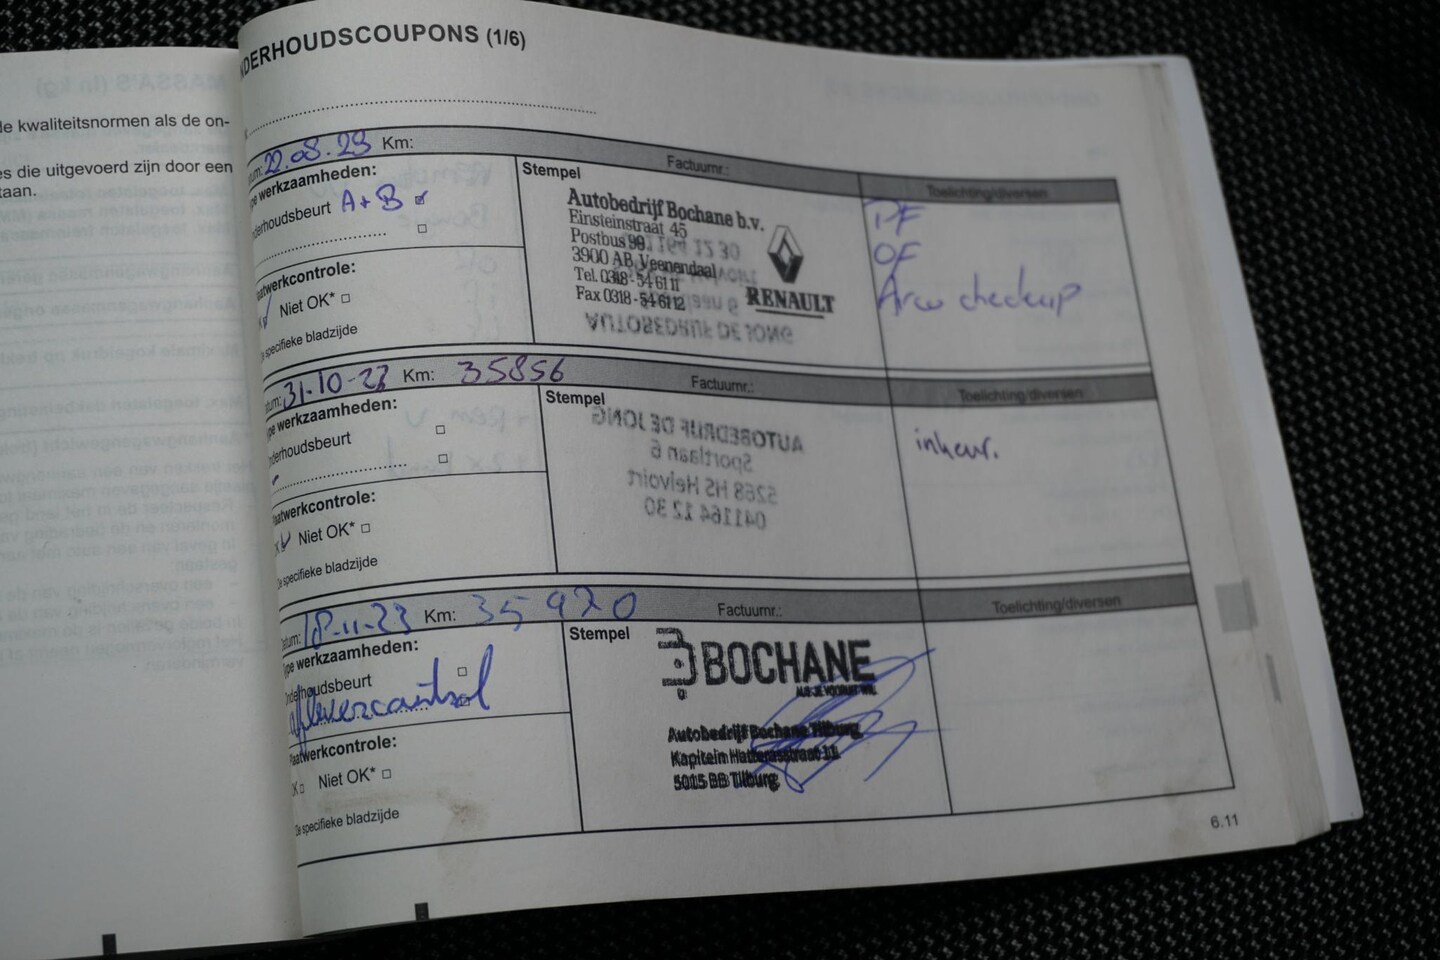 NDERHOUDSCOUPONS (1/6)
de kwaliteitsnormen als de on-
es die uitgevoerd zijn door een
taan.
MASSA'S (in kg)
tum: 22.08.23 Km: Factuurnr.: Toelichting/diversen
pe werkzaamheden:
derhoudsbeurt A+B
aatwerkcontrole:
Niet OK*
e specifieke bladzijde
Stempel
Autobedrijf Bochane b.v.
Einsteinstraat 45
Postbus 99
3900 AB Veenendaal
Tel. 0318 - 54 61 11
Fax 0318 - 54 61 12
RENAULT
AUTOBEDRIJF DE JONG
PF
OF
Airco checkup
tum: 31-10-23 Km: 35856 Factuurnr.: Toelichting/diversen
pe werkzaamheden:
derhoudsbeurt
aatwerkcontrole:
Niet OK*
e specifieke bladzijde
Stempel
AUTOBEDRIJF DE JONG
Sportlaan 6
5268 HS Helvoirt
041164 12 30
inkeur.
Datum: 18-11-23 Km: 35920 Factuurnr.: Toelichting/diversen
ype werkzaamheden:
Onderhoudsbeurt
aflevercontrol
aatwerkcontrole:
K Niet OK*
De specifieke bladzijde
Stempel
BOCHANE
ALS JE VOORUIT WIL
Autobedrijf Bochane Tilburg
Kapitein Hatterasstraat 11
5015 BB Tilburg
6.11